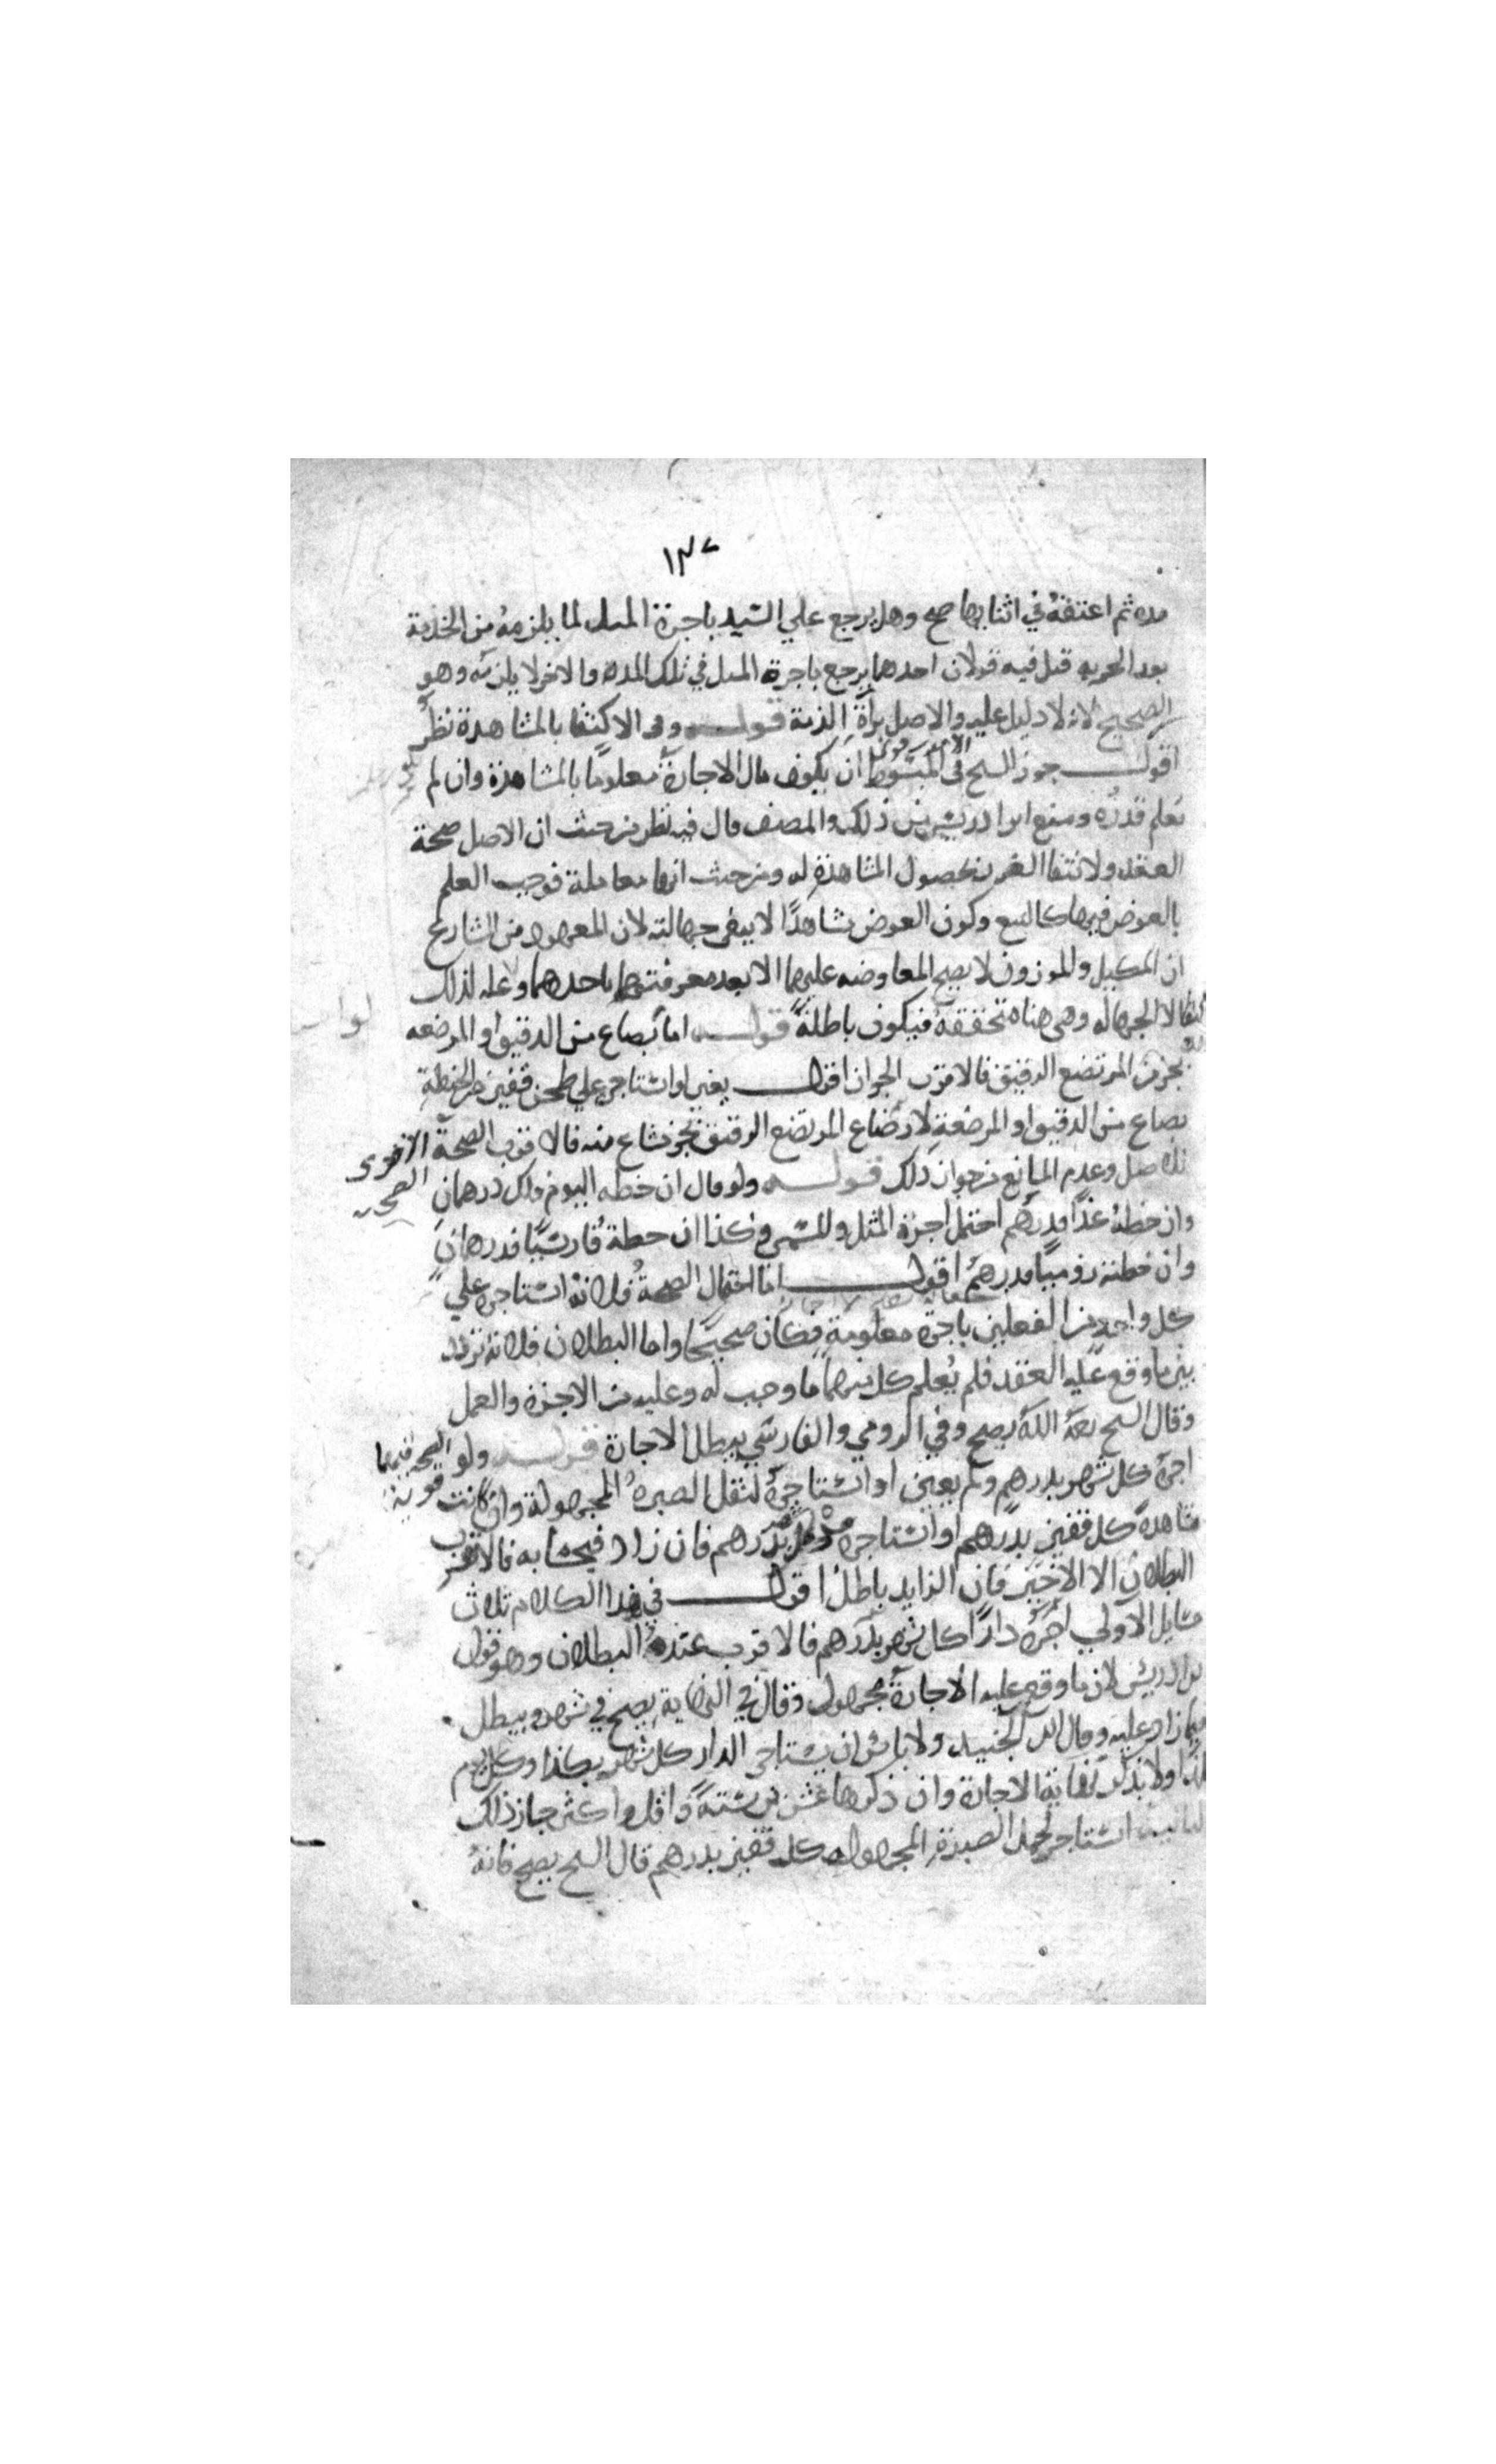 ١٣٧
مده ثم اعتقه في اثنايها صح وهل يرجع علي السيد باجرة المثل لما يلزمه من الخدمة
بعد الحريه قيل فيه قولان احدهما يرجع باجرة المثل في تلك المدة والاخر لا يلزمه وهو
الصحيح لانه لا دليل عليه والاصل براة الذمة قولـــه وفي الاكتفا بالمشاهدة نظر
اقولـــ جوز الشيخ في المبسوط ان يكون مال الاجارة معلوما بالمشاهدة وان لم
يعلم قدره ومنع ابن ادريس من ذلك والمصنف قال فيه نظر من حيث ان الاصل صحة
العقد ولانتفا الغرر بحصول المشاهدة له ومن حيث انها معاملة فوجب العلم
بالعوض فيها كالبيع وكون العوض مشاهدا لا ينفي جهالته لان المعهود من الشارع
ان المكيل والموزون لا يصح المعاوضه عليهما الا بعد معرفتهما باحدهما وعله لذلك
الجهاله وهي هنا متحققة فيكون باطلة قولـــه اما بصاع من الدقيق او المرضعه
بجزء من المرتضع الرقيق فالاقرب الجواز اقولـــ يعني لو استاجره علي طحن قفيز من الحنطة
بصاع من الدقيق او المرضعة لارضاع المرتضع الرقيق بجزء مشاع منه فالاقرب الصحة الاقوى
للاصل وعدم المانع من جواز ذلك قولـــه ولو قال ان خطته اليوم فلك درهمان الصحة
وان خطته غدا فدرهم احتمل اجرة المثل والمسمي وكذا ان خطته فارسيا فدرهمان
وان خطته روميا فدرهم اقولـــ اما احتمال الصحة فلانه استاجره علي
كل واحد من الفعلين باجرة معلومة فكان صحيحا واما البطلان فلانه تردد
بين ما وقع عليه العقد فلم يعلم كل منهما ما وجب له وعليه من الاجرة والعمل
وقال الشيخ رحمه الله يصح وفي الرومي والفارسي يبطل الاجارة قولـــه ولو الصحة فيهما قوية
اجره كل شهر بدرهم ولم يعين او استاجره لنقل الصبره المجهولة وان كانت
مشاهدة كل قفيز بدرهم او استاجره كل بدرهم فان زاد فبحسابه فالاقرب
البطلان الا الاخير فان الزايد باطل اقولـــ في هذا الكلام ثلاث
مسايل الاولي اجره دارا كل شهر بدرهم فالاقرب عنده البطلان وهو قول
ابن ادريس لان ما وقع عليه الاجارة مجهول وقال في النهاية يصح في شهر ويبطل
فيما زاد عليه وقال ابن الجنيد ولا باس ان يستاجر الدار كل شهر بكذا وكل يوم
بكذا ولا يذكر نهاية الاجارة وان ذكرها عشرين سنة واقل واكثر جاز ذلك
الثانية استاجره لحمل الصبرة المجهوله كل قفيز بدرهم قال الشيخ يصح فانه